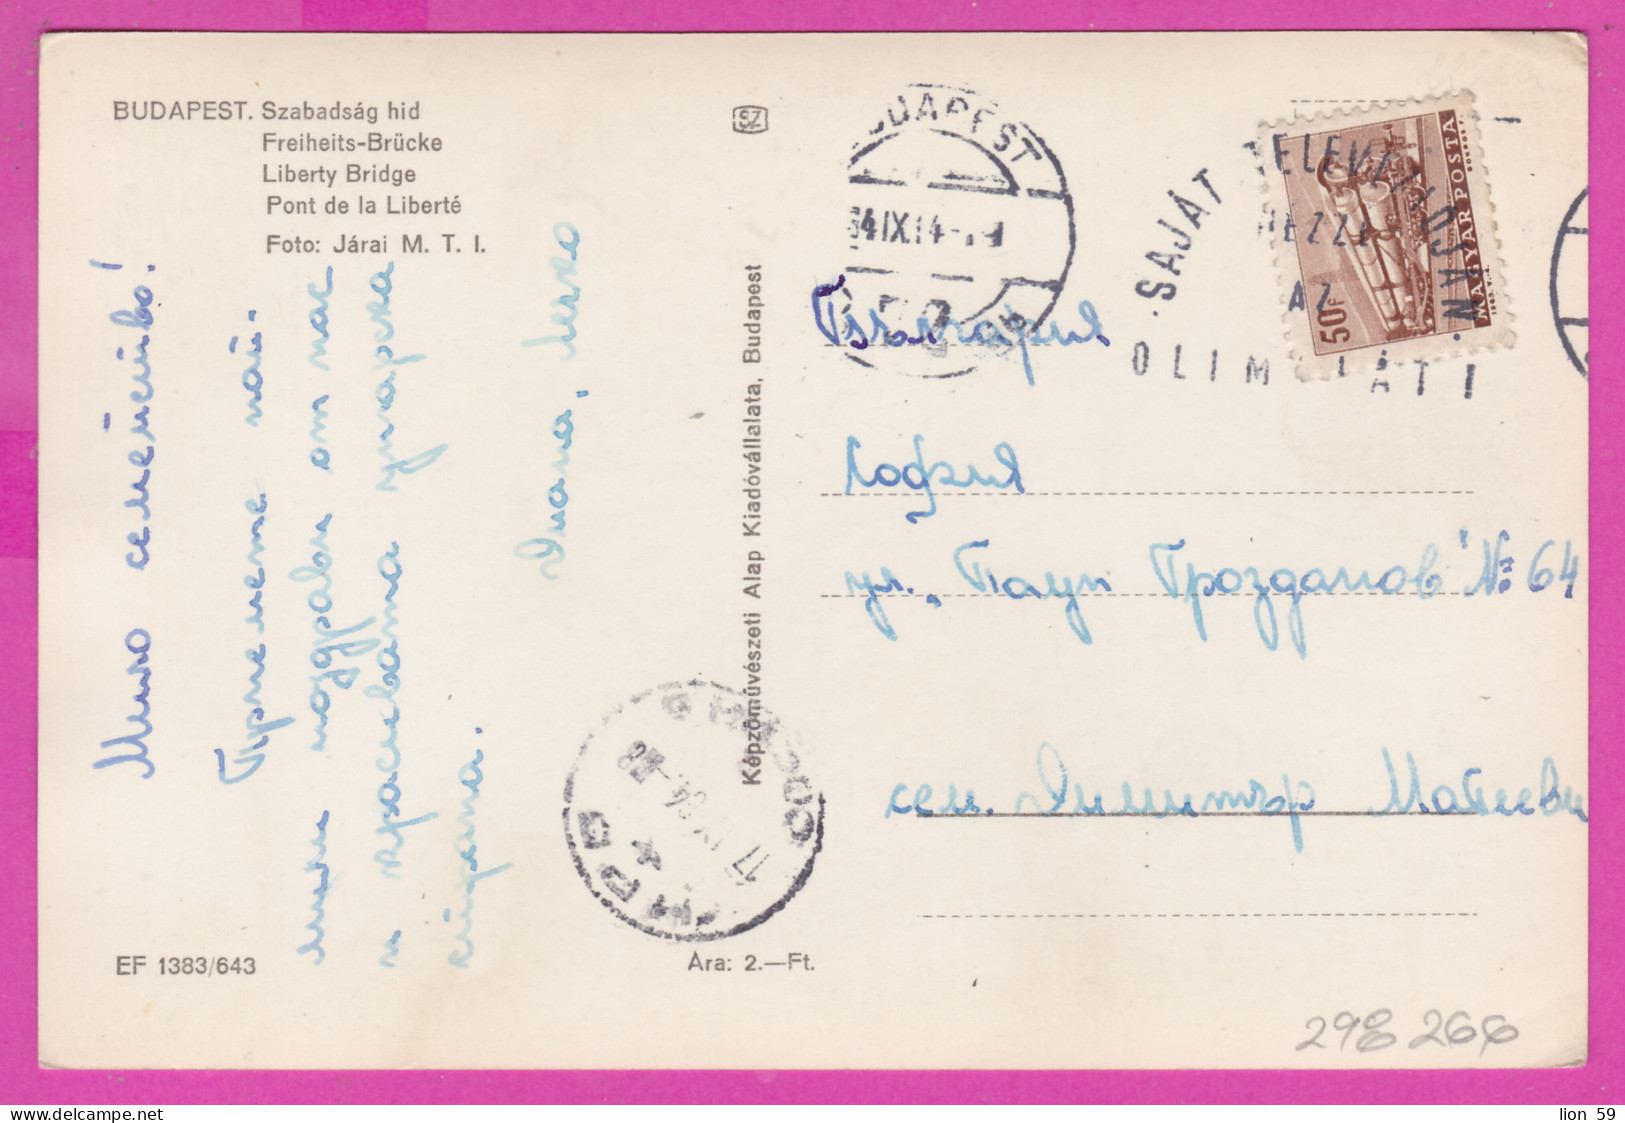 BUDAPEST. Szabadság hid
Freiheits-Brücke
Liberty Bridge
Pont de la Liberté
Foto: Járai M. T. I.
Мило семейство!
Приемете най-
мили поздрави от нас
и красивата унгарска
столица.
Лиляна,
EF 1383/643
Ara: 2.—Ft.
Képzőművészeti Alap Kiadóvállalata, Budapest
SZ
BUDAPEST
64 IX.14
·SAJÁT TELEVIZIÓJÁN·
NÉZZE
AZ
OLIMPIÁT!
50F
MAGYAR POSTA
България
София
ул. „Паун Грозданов" № 64
сем. Димитър Матееви
СОФИЯ
17 IX 64
298 266
lion 59